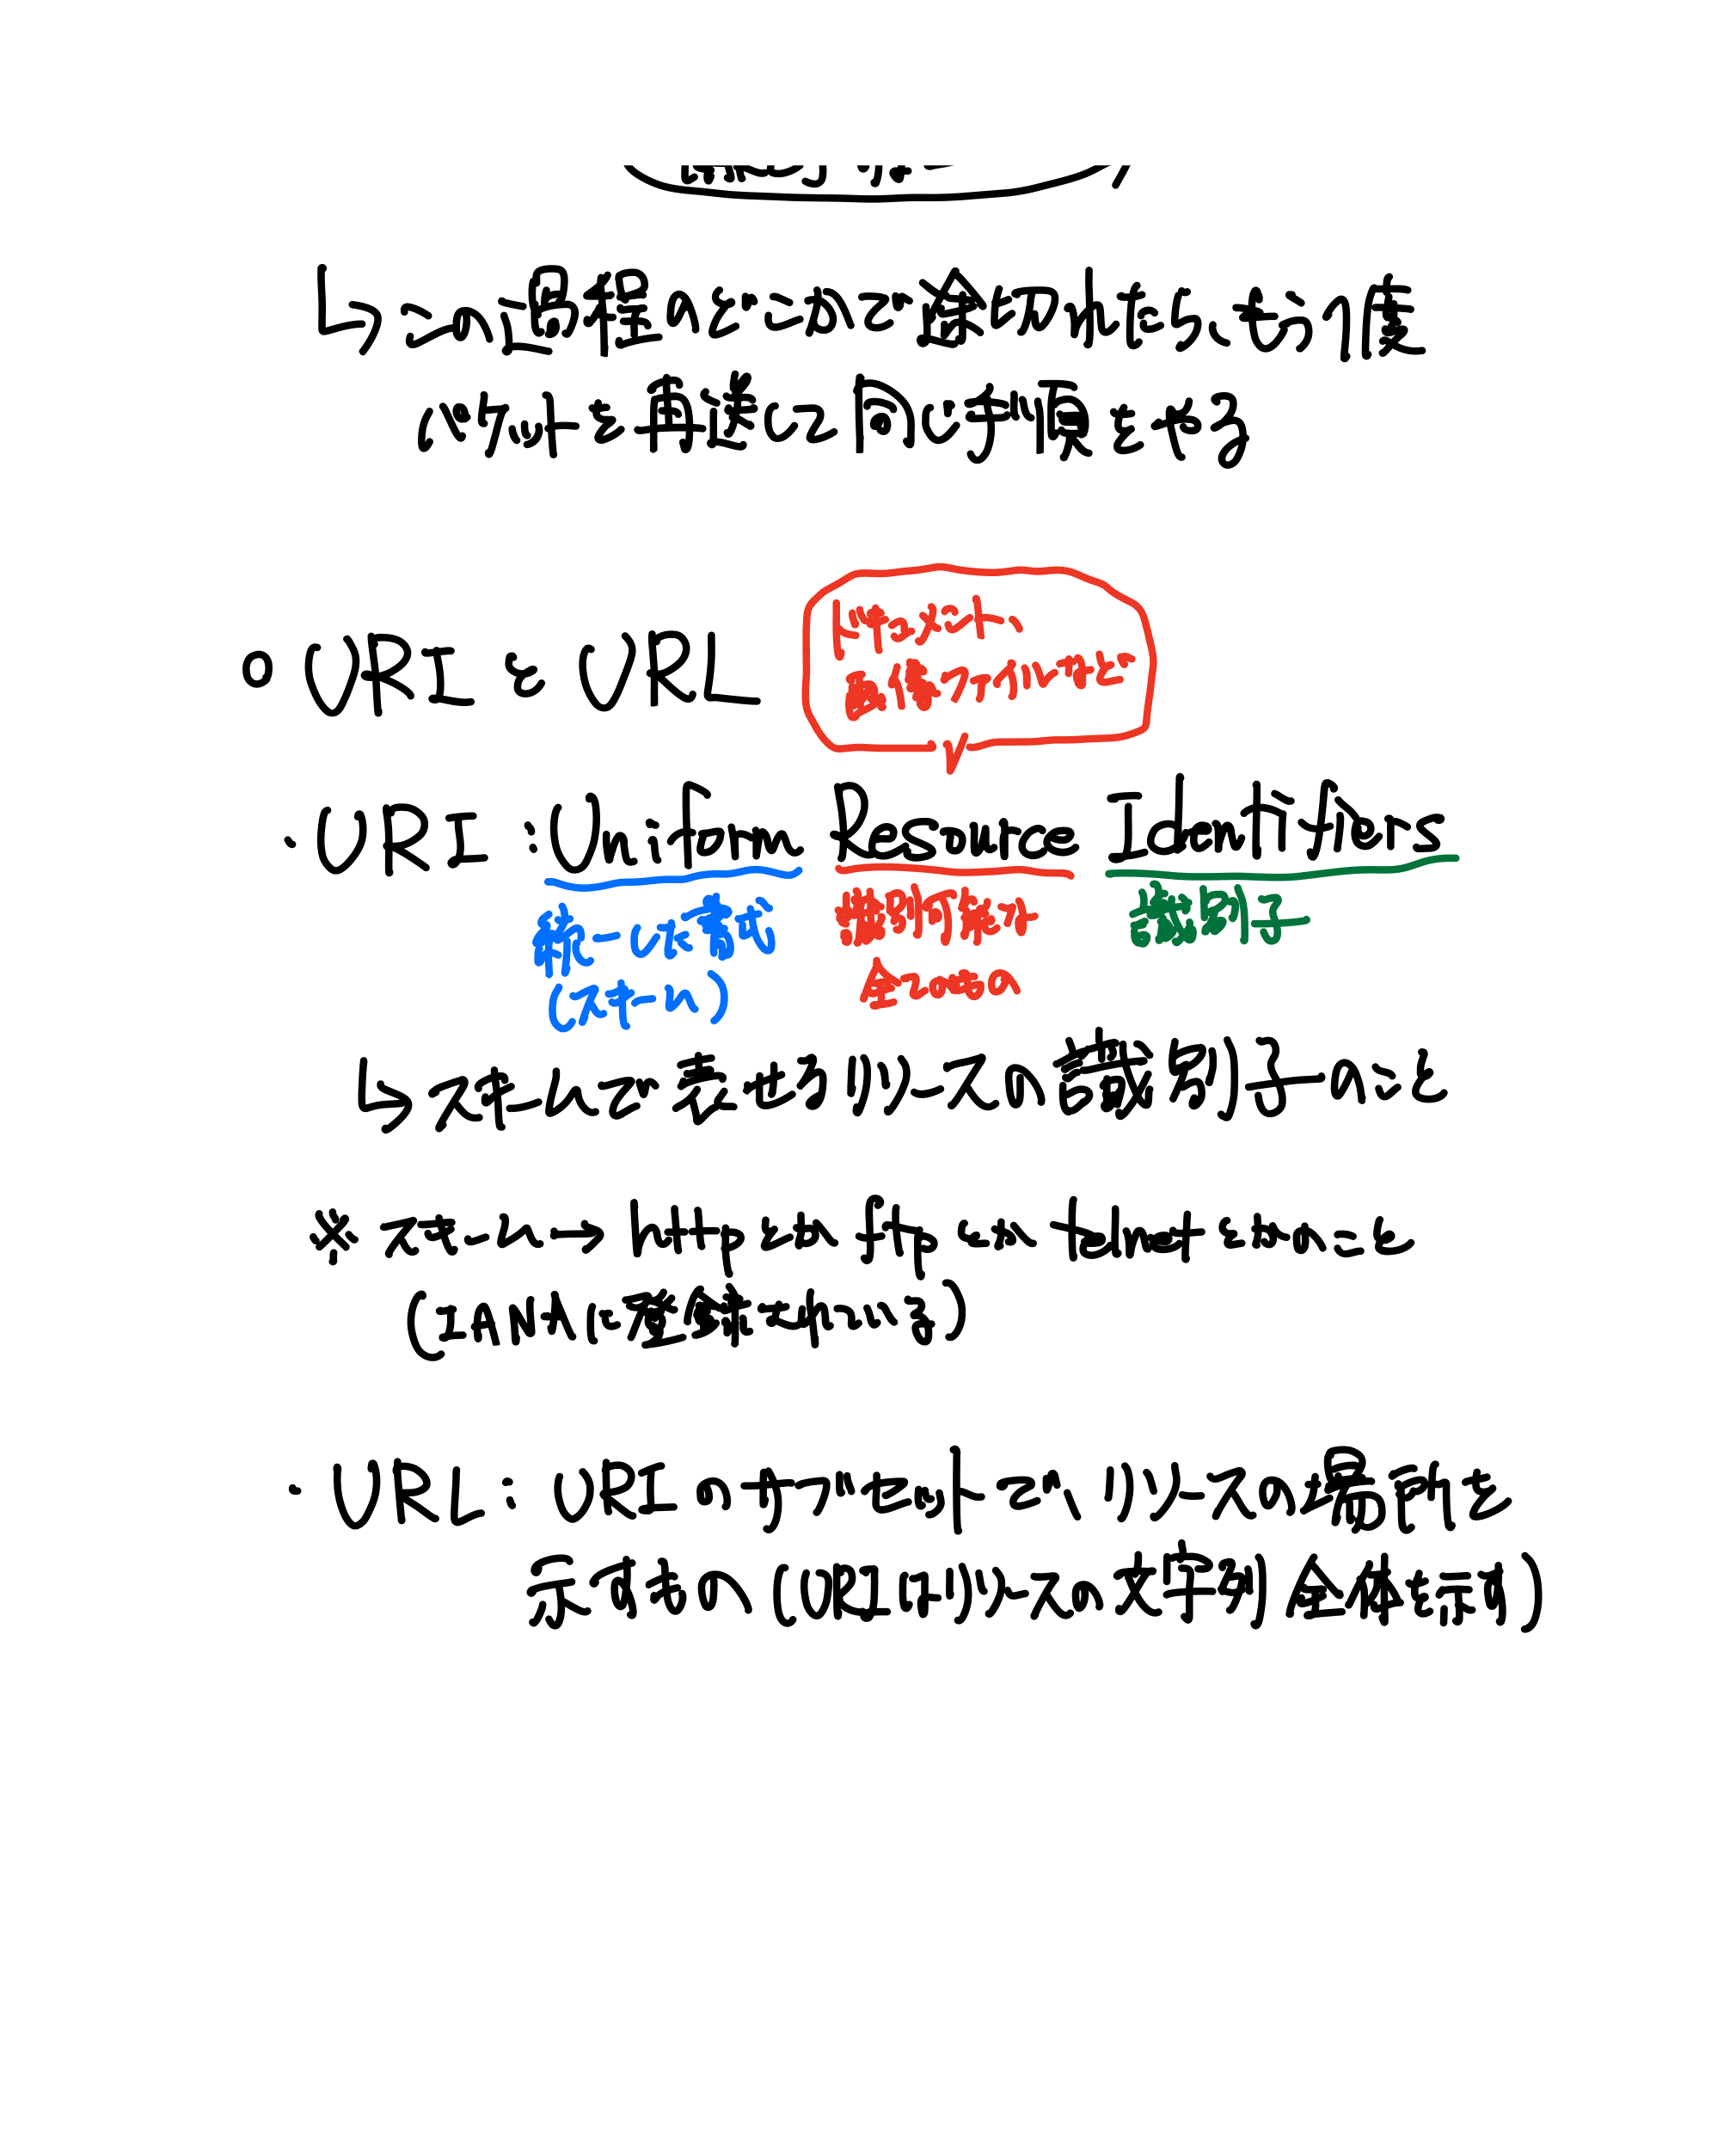 ↳この過程のどこかで途切れたら、もう1度
パケットを再送して同じ手順をやる
○URIとURL
ドキュメント、
画像、ファイルなど
・URI:Uniform Resource Identifiers
統一した書式 識別可能な 識別子
(スキーム) 全てのもの
↳スキームで表せるリソースの識別子のこと
※スキーム→httpとかftpとかtelnetとかのこと
(IANAに登録されている)
・URL:URIのサブセットで、リソースの場所を
示すもの(URIはリソースの文字列全体を示す)